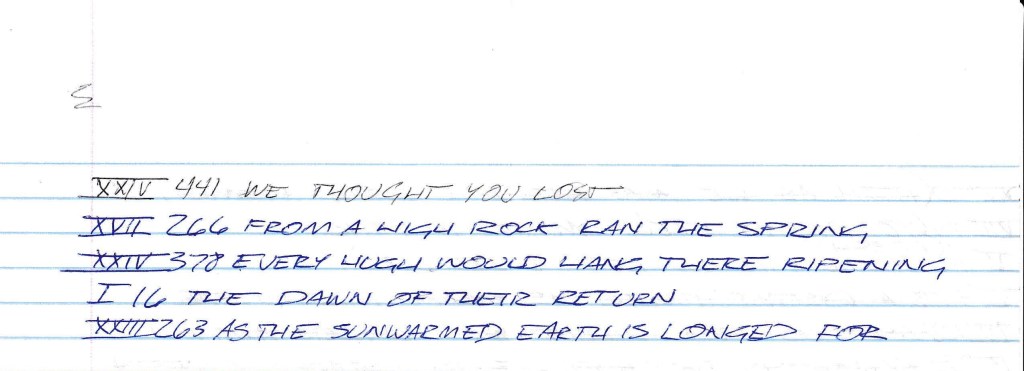 XXIV 441 WE THOUGHT YOU LOST
XVII 266 FROM A HIGH ROCK RAN THE SPRING,
XXIV 378 EVERY HUGH WOULD HANG THERE RIPENING
I 16 THE DAWN OF THEIR RETURN
XXIII 263 AS THE SUNWARMED EARTH IS LONGED FOR